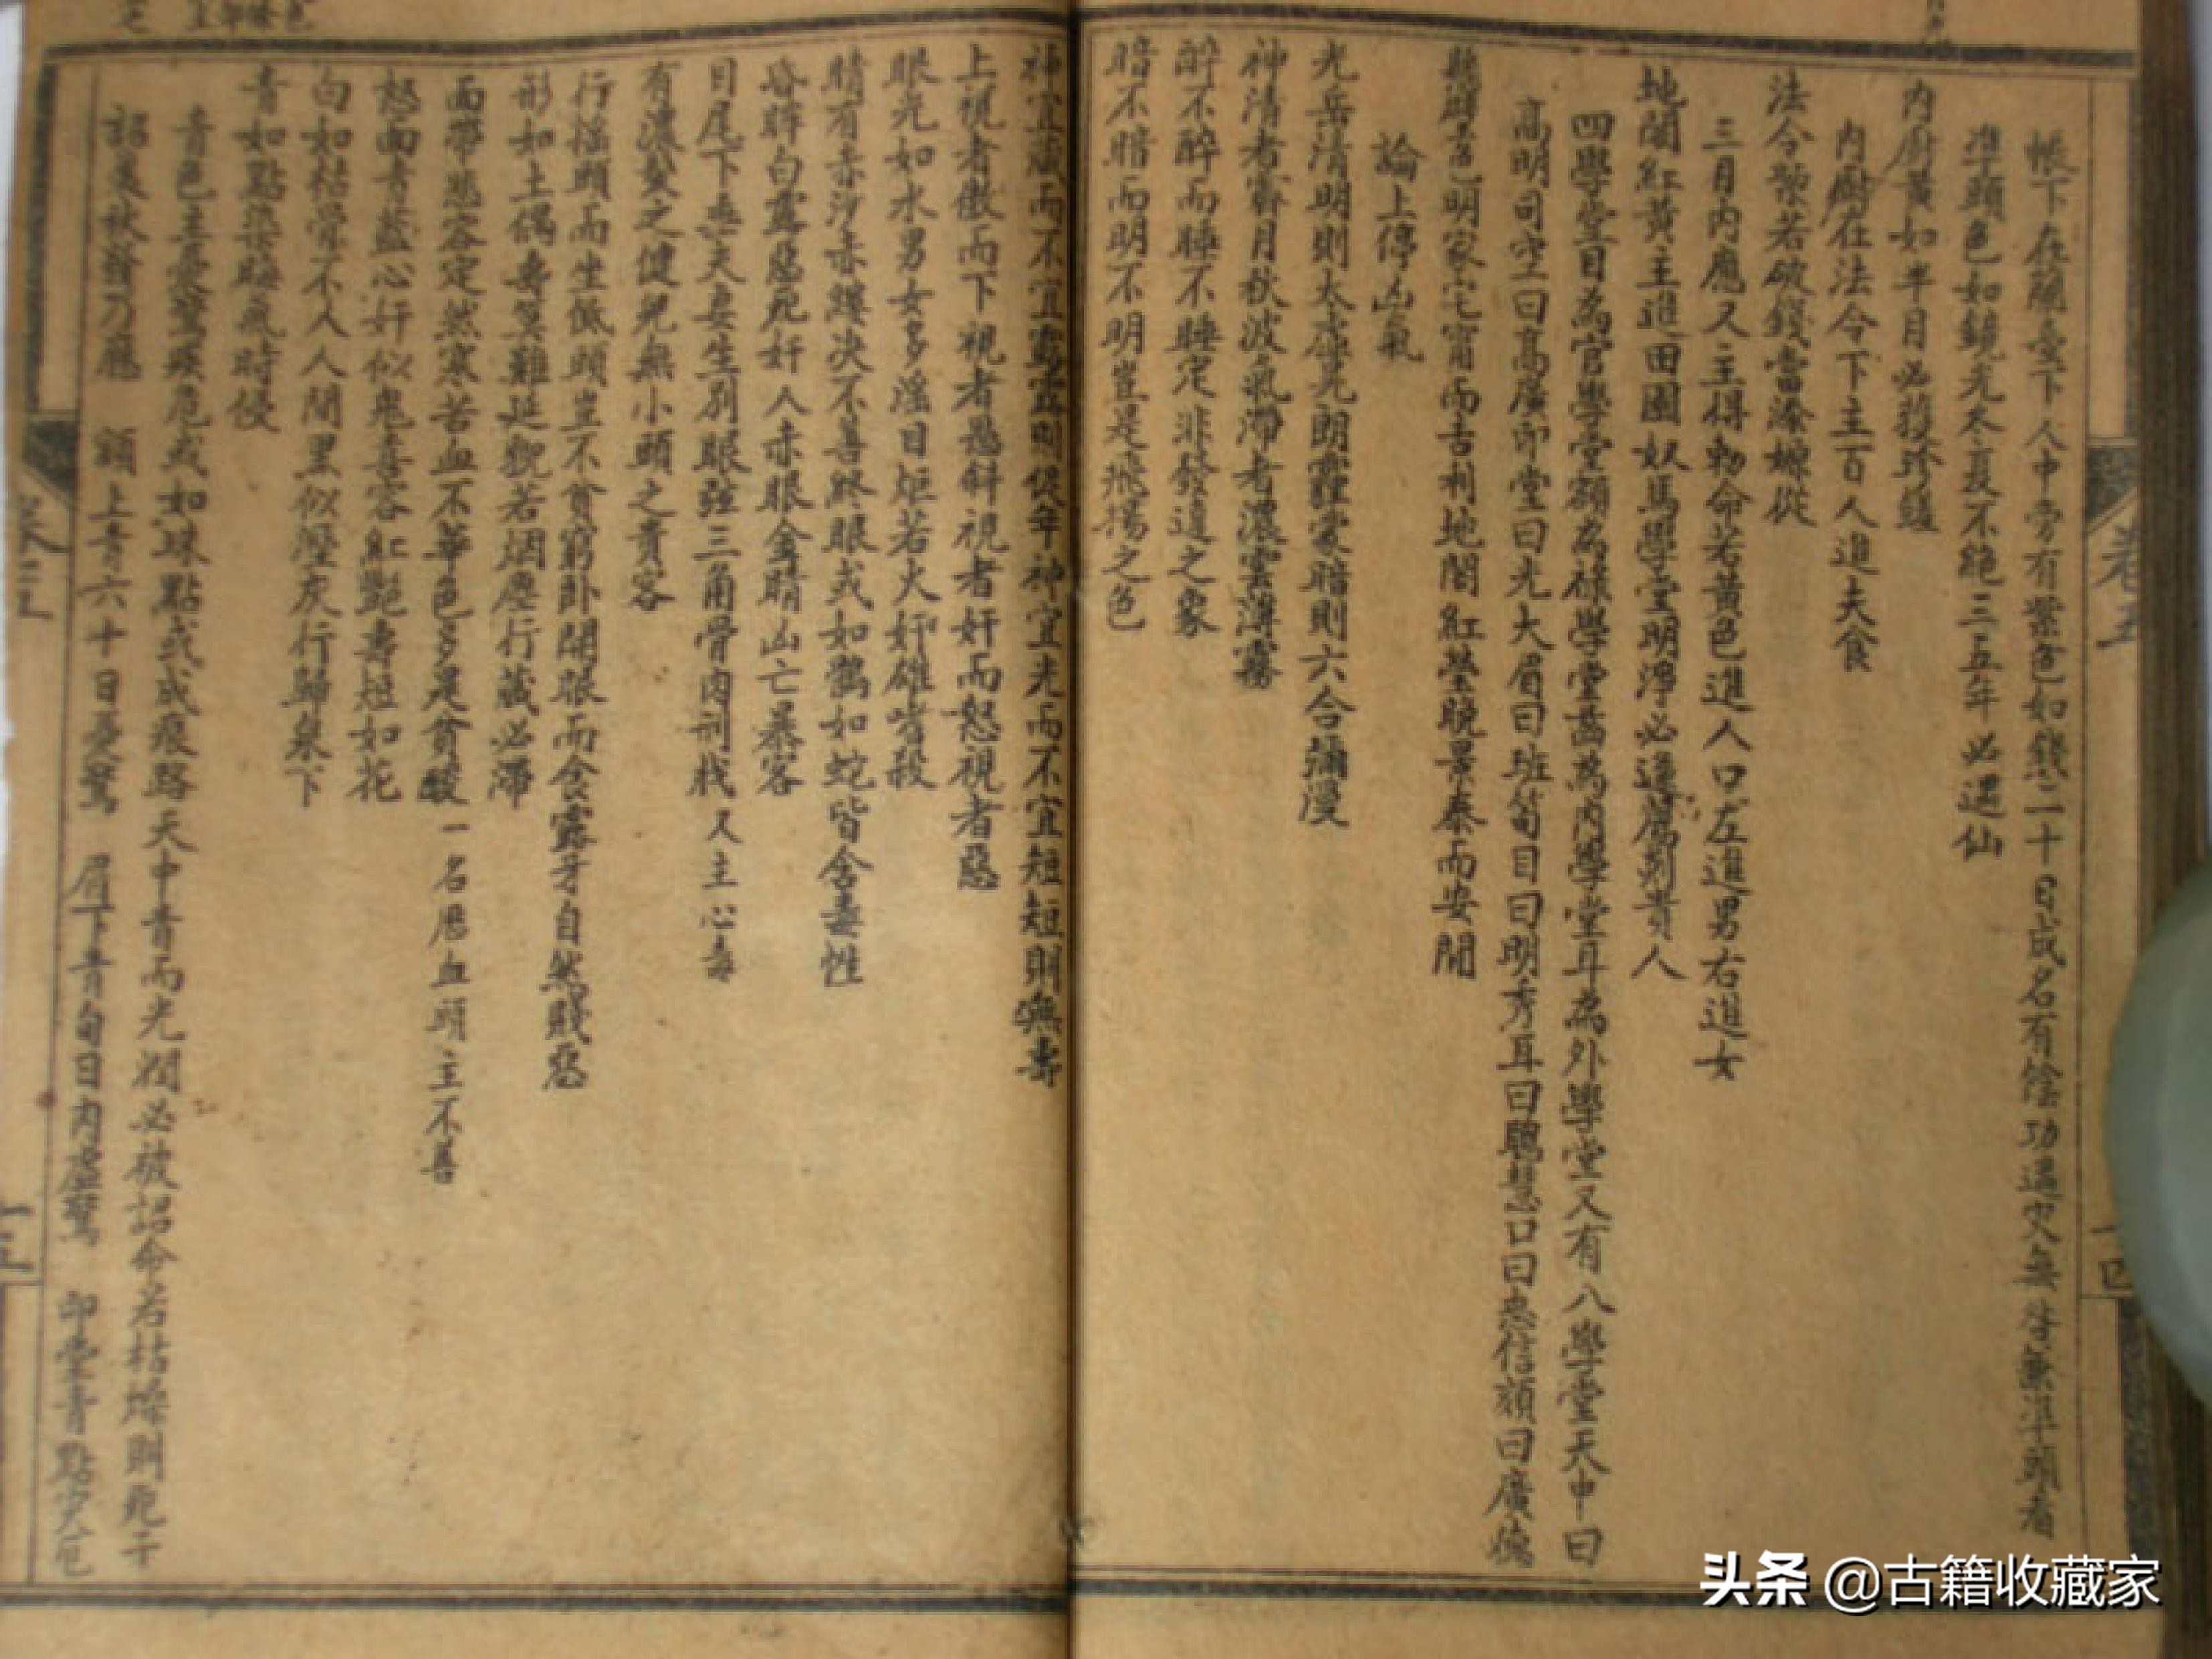 帳下在蘭臺下人中旁有紫色如錢二十日成名有陰功過災無咎無準頭看
準頭色如鏡光冬夏不絕三五年必遇仙
內廚黃如半月必獲珍饈
內廚在法令下主百人進夫食
法令黎若破錢當添媵從
三月內應又主得勅命若黃色進人口左進男右進女
地閣紅黃主進田園奴馬學堂明淨必逢薦剡貴人
四學堂目為官學堂額為祿學堂齒為內學堂耳為外學堂又有八學堂天中曰
高明司空曰高廣印堂曰光大眉曰班筍目曰明秀耳曰聰慧口曰忠信頦曰廣德
懸壁色明家宅甯而吉利地閣紅瑩晚景泰而安閒
論上停凶氣
光岳清明則太虛晃朗霾蒙暗則六合瀰漫
神清者霽月秋波氣滯者濃雲薄霧
醉不醉而睡不睡定非發達之象
暗不暗而明不明豈是飛揚之色
神宜藏而不宜露露則促年神宜光而不宜短短則無壽
上視者傲而下視者愚斜視者奸而怒視者惡
眼光如水男女多淫目炬若火奸雄嗜殺
睛有赤沙赤縷决不善終眼或如鶴如蛇皆含毒性
昏眸白露惡死奸人赤眼金睛凶亡暴客
目尾下垂夫妻生別眼弦三角骨肉刑戕又主心毒
有濃髮之健兒無小頭之貴客
行搖頭而坐低頭豈不貧窮臥開眼而食露牙自然賤惡
形如土偶壽算難延貌若烟塵行藏必滯
面帶悲容定然寒苦血不華色多是貧酸一名唇血頭主不善
怒面青藍心奸似鬼喜容紅艷壽短如花
白如枯骨不久人閒黑似溼灰行歸泉下
青如點染晦氣時侵
青色主憂驚疾厄或如珠點或成痕路天中青而光潤必被詔命若枯燥則死于
詔責秋發乃應　額上青六十日憂驚　眉下青旬日內虛驚　印堂青點災厄
卷五
十四
卷五
十五
头条 @古籍收藏家